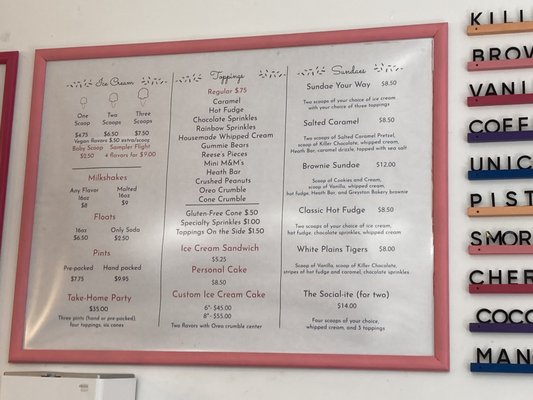 Ice Cream
One Scoop
Two Scoops
Three Scoops
$4.75 $6.50 $7.50
Vegan flavors $.50 extra/scoop
Baby Scoop Sampler Flight
$2.50 4 flavors for $9.00
Milkshakes
Any Flavor Malted
16oz 16oz
$8 $9
Floats
16oz Only Soda
$6.50 $2.50
Pints
Pre-packed Hand packed
$7.75 $9.95
Take-Home Party
$35.00
Three pints (hand or pre-packed),
four toppings, six cones
Toppings
Regular $.75
Caramel
Hot Fudge
Chocolate Sprinkles
Rainbow Sprinkles
Housemade Whipped Cream
Gummie Bears
Reese's Pieces
Mini M&M's
Heath Bar
Crushed Peanuts
Oreo Crumble
Cone Crumble
Gluten-Free Cone $.50
Specialty Cones $1.00
Toppings On the Side $1.50
Ice Cream Sandwich
$5.25
Personal Cake
$8.50
Custom Ice Cream Cake
6"- $45.00
8"- $55.00
Two flavors with Oreo crumble center
Sundaes
Sundae Your Way $8.50
Two scoops of your choice of ice cream
with your choice of three toppings
Salted Caramel $8.50
Two scoops of Salted Caramel Pretzel,
scoop of Killer Chocolate, whipped cream,
Heath Bar, caramel drizzle, topped with sea salt
Brownie Sundae $12.00
Scoop of Cookies and Cream,
scoop of Vanilla, whipped cream,
hot fudge, Heath Bar, and Greyston Bakery brownie
Classic Hot Fudge $8.50
Two scoops of your choice of ice cream,
hot fudge, chocolate sprinkles, whipped cream
White Plains Tigers $8.00
Scoop of Vanilla, scoop of Killer Chocolate,
stripes of hot fudge and caramel, chocolate sprinkles
The Social-ite (for two)
$14.00
Four scoops of your choice,
whipped cream, and 3 toppings
KILL
BROW
VANIL
COFFE
UNIC
PIST
SMOR
CHER
COCO
MAN